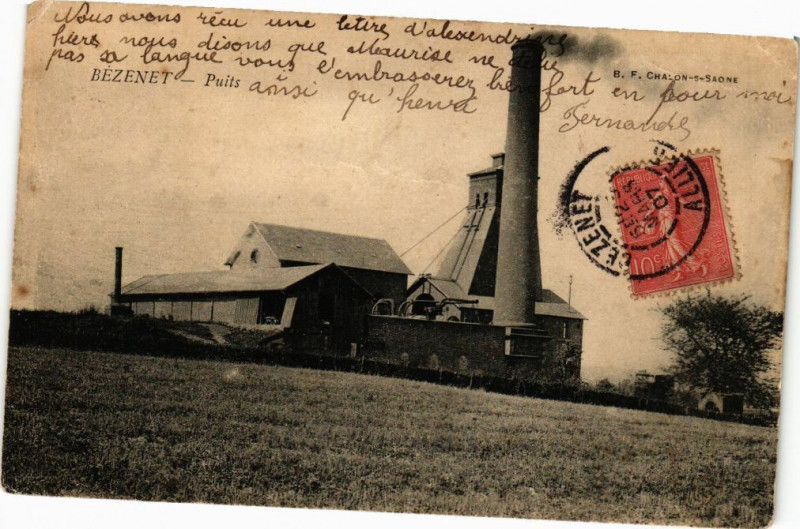 Nous avons reçu une letire d'alexendrine
hier nous disons que Maurise ne
pas sa langue vous l'embrasserez bien fort en pour moi
ainsi qu'henri
Fernande
BÉZENET — Puits
B. F. CHALON-S-SAONE
BÉZENET
ALLIER
07